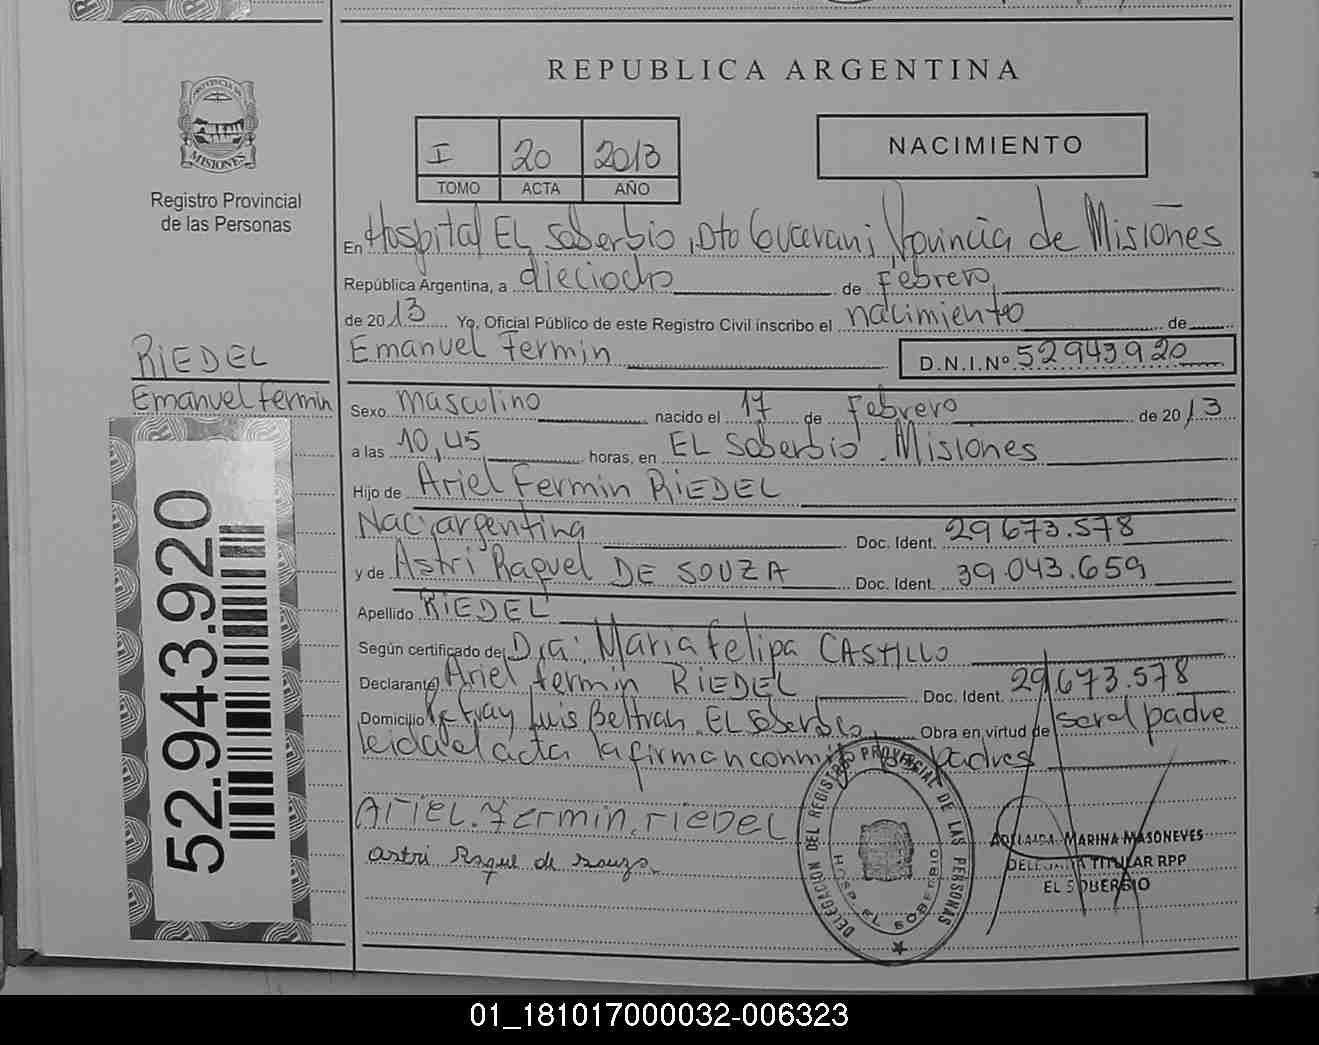 REPUBLICA ARGENTINA
PROVINCIA DE
MISIONES
Registro Provincial
de las Personas
I 20 2013
TOMO ACTA AÑO
NACIMIENTO
En Hospital EL Soberbio, Dto Guarani, Provincia de Misiones
República Argentina, a dieciocho de Febrero
de 2013 Yo, Oficial Público de este Registro Civil inscribo el nacimiento de
Emanuel Fermin D.N.I.Nº 52943920
RIEDEL
Emanuel Fermin
52.943.920
Sexo masculino nacido el 17 de Febrero de 2013
a las 10,45 horas, en EL Soberbio. Misiones
Hijo de Ariel Fermin RIEDEL
Nac. argentina Doc. Ident. 29673.578
y de Astri Raquel DE SOUZA Doc. Ident. 39.043.659
Apellido RIEDEL
Según certificado de Dra. Maria Felipa CASTILLO
Declarante Ariel fermin RIEDEL Doc. Ident. 29.673.578
Domicilio Fray Luis Beltran. EL Soberbio Obra en virtud de ser el padre
leida el acta la firman conmigo padres
Ariel. Fermin. riedel
astri Raque de souza
DELEGACION DEL REGISTRO PROVINCIAL DE LAS PERSONAS
HOSP. EL SOBERBIO
ADELAIDA MARINA MASONEVES
DELEGADA TITULAR RPP
EL SOBERBIO
01_181017000032-006323